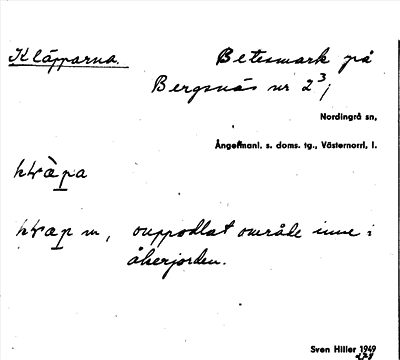 Kläpparna. Betesmark på
Bergsnäs nr 2³;
Nordingrå sn,
Ångermanl. s. doms. tg., Västernorrl. l.
ouppodlat område inne i
åkerjorden.
Sven Hiller 1949